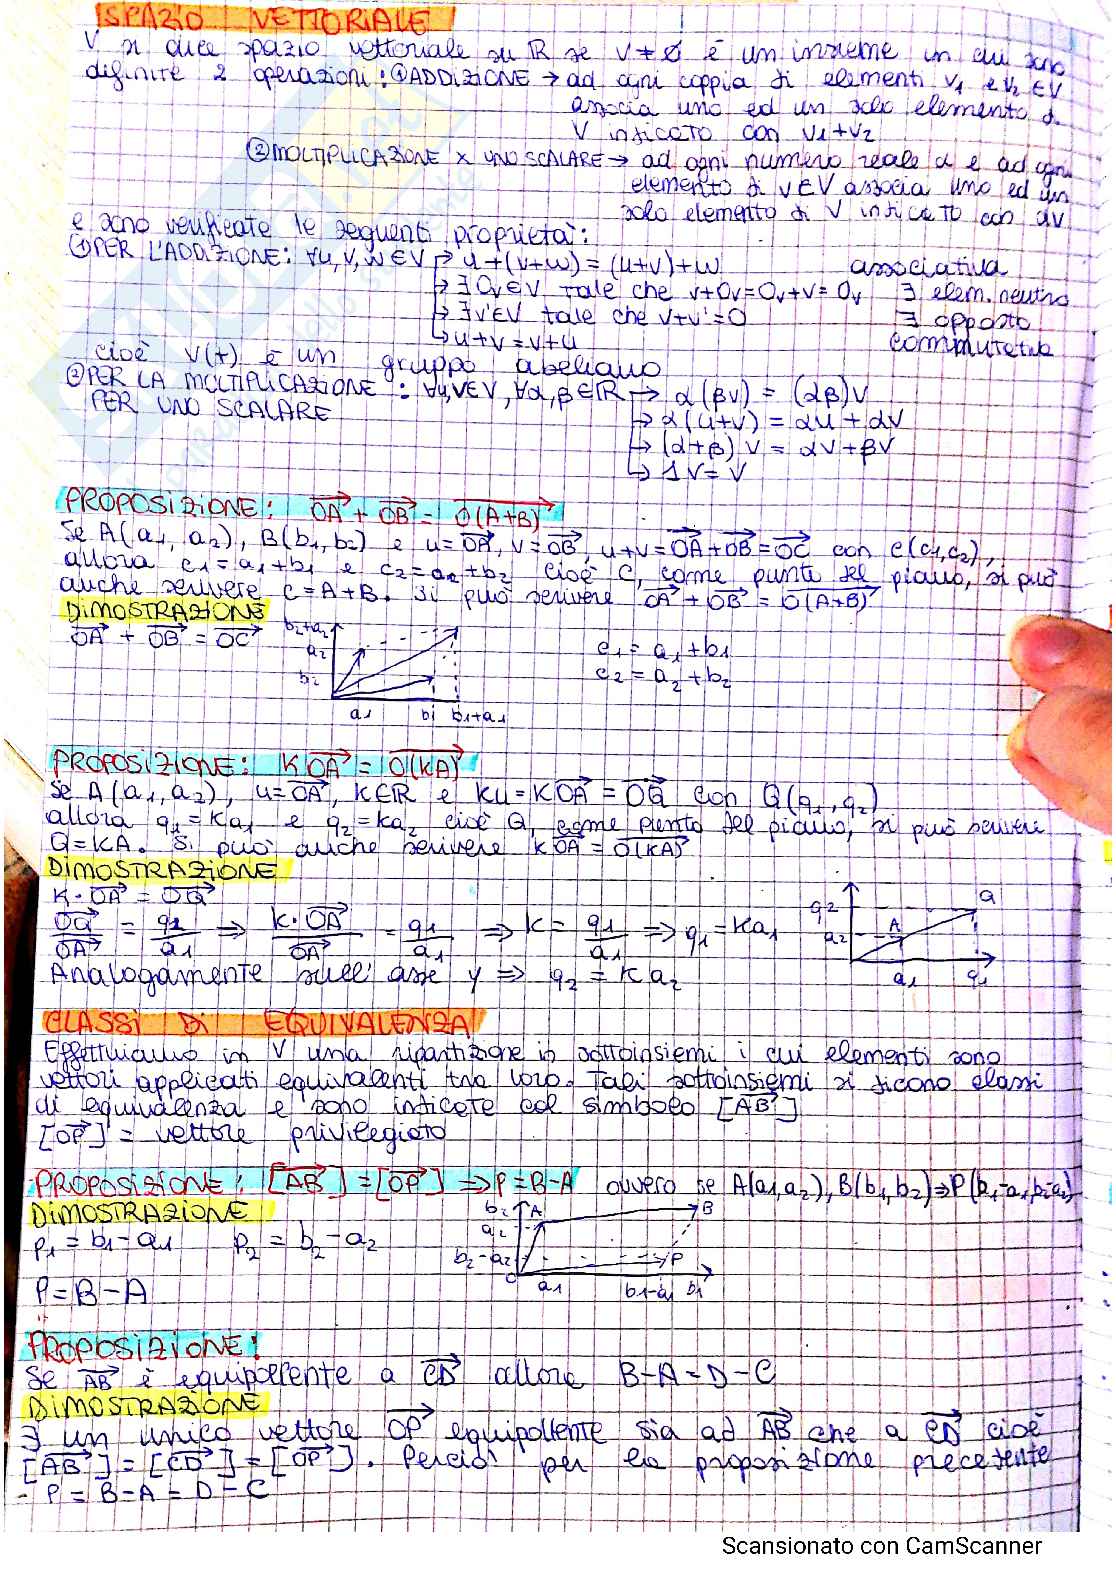 SPAZIO VETTORIALE
V si dice spazio vettoriale su ℝ se V ≠ ∅ è un insieme in cui sono
definite 2 operazioni: ①ADDIZIONE → ad ogni coppia di elementi v₁ e v₂ ∈ V
associa uno ed un solo elemento di
V indicato con v₁+v₂
②MOLTIPLICAZIONE x UNO SCALARE → ad ogni numero reale α e ad ogni
elemento di v∈V associa uno ed un
solo elemento di V indicato con αv
e sono verificate le seguenti proprietà:
①PER L'ADDIZIONE: ∀u,v,w∈V ↱ u+(v+w) = (u+v)+w associativa
↳ ∃ 0ᵥ∈V tale che v+0ᵥ=0ᵥ+v=0ᵥ ∃ elem. neutro
↳ ∃v'∈V tale che v+v'=0 ∃ opposto
↳ u+v=v+u commutativa
cioè V(+) è un gruppo abeliano
②PER LA MOLTIPLICAZIONE : ∀u,v∈V, ∀α,β∈ℝ → α(βv) = (αβ)v
PER UNO SCALARE ↳ α(u+v) = αu+αv
↳ (α+β)v = αv+βv
↳ 1v=v
PROPOSIZIONE: OA→ + OB→ = O(A+B)→
Se A(a₁,a₂), B(b₁,b₂) e u=OA→, v=OB→, u+v=OA→+OB→=OC→ con C(c₁,c₂),
allora c₁=a₁+b₁ e c₂=a₂+b₂ cioè C, come punto del piano, si può
anche scrivere C=A+B. Si può scrivere OA→+OB→=O(A+B)→
DIMOSTRAZIONE
OA→ + OB→ = OC→
b₂+a₂
a₂
b₂
a₁ b₁ b₁+a₁
c₁=a₁+b₁
c₂=a₂+b₂
PROPOSIZIONE: KOA→ = O(KA)→
Se A(a₁,a₂), u=OA→, K∈ℝ e Ku=KOA→=OQ→ con Q(q₁,q₂)
allora q₁=Ka₁ e q₂=Ka₂ cioè Q, come punto del piano, si può scrivere
Q=KA. Si può anche scrivere KOA→=O(KA)→
DIMOSTRAZIONE
K·OA→ = OQ→
OQ→/OA→ = q₁/a₁ ⟹ K·OA→/OA→ = q₁/a₁ ⟹ K = q₁/a₁ ⟹ q₁=Ka₁
q₂ Q
a₂ A
a₁ q₁
Analogamente sull'asse y ⟹ q₂=Ka₂
CLASSI DI EQUIVALENZA
Effettuiamo in V una ripartizione in sottoinsiemi i cui elementi sono
vettori applicati equivalenti tra loro. Tali sottoinsiemi si dicono classi
di equivalenza e sono indicate col simbolo [AB→]
[OP→] = vettore privilegiato
PROPOSIZIONE: [AB→]=[OP→] ⟹ P=B-A ovvero se A(a₁,a₂), B(b₁,b₂)⟹P(b₁-a₁,b₂-a₂)
DIMOSTRAZIONE
p₁=b₁-a₁ p₂=b₂-a₂
P=B-A
b₂ A B
a₂
b₂-a₂ P
O a₁ b₁-a₁ b₁
PROPOSIZIONE:
Se AB→ è equipollente a CD→ allora B-A=D-C
DIMOSTRAZIONE
∃ un unico vettore OP→ equipollente sia ad AB→ che a CD→ cioè
[AB→]=[CD→]=[OP→]. Perciò per la proposizione precedente
P=B-A=D-C
Scansionato con CamScanner